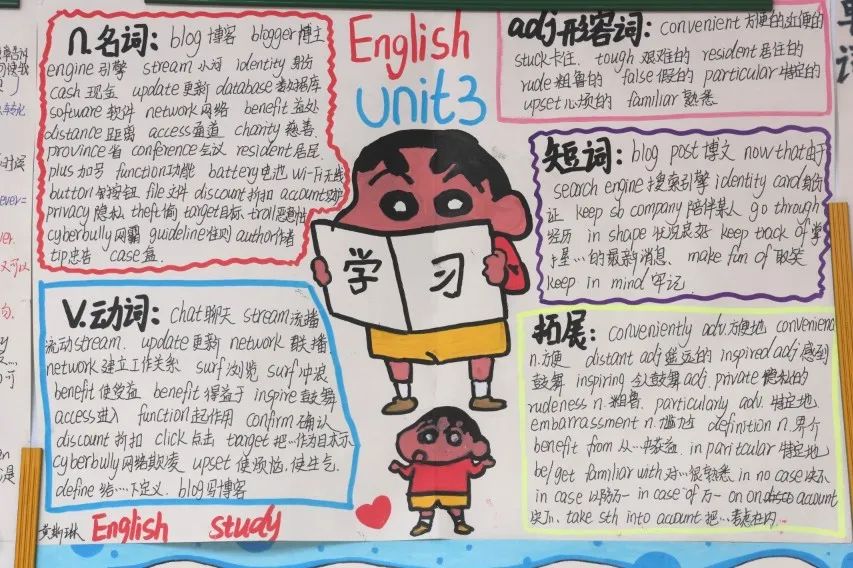 n.名词: blog 博客 blogger 博主
engine 引擎 stream 小河 identity 身份
cash 现金 update 更新 database 数据库
software 软件 network 网络 benefit 益处
distance 距离 access 通道 charity 慈善
province 省 conference 会议 resident 居民
plus 加号 function 功能 battery 电池 wi-Fi 无线
button 按钮 file 文件 discount 折扣 account
privacy 隐私 theft 偷 target 目标 troll
cyberbully 网霸 guideline 准则 author 作者
tip 忠告 case 盒
English
Unit3
adj形容词: convenient 方便的近便的
stuck 卡住. tough 艰难的 resident 居住的
rude 粗鲁的 false 假的 particular 特定的
upset 心烦的 familiar 熟悉
短词: blog post 博文 now that 由于
search engine 搜索引擎 identity card 身份
证 keep sb company 陪伴某人 go through
经历 in shape 状况良好 keep track of 掌
握…的最新消息. make fun of 取笑
keep in mind 牢记
学习
V.动词: chat 聊天 stream 流播
流动 stream. update 更新 network 联播.
network 建立工作关系 surf 浏览 surf 冲浪
benefit 使受益 benefit 得益于 inspire 鼓舞
access 进入 function 起作用 confirm 确认
discount 折扣 click 点击 target 把…作为目标
cyberbully 网络欺凌 upset 使烦恼.使生气
define 给…下定义. blog 写博客
拓展: conveniently adv.方便地 convenienc
n.方便 distant adj 遥远的 inspired adj 感到
鼓舞 inspiring 令人鼓舞 adj. private 的
rudeness n.粗鲁. particularly adv. 特定地
embarrassment n.尴尬 definition n.
benefit from 从…中获益. in paritcular 特定地
be/get familiar with 对…很熟悉 in no case 决不
in case 以防万一 in case of 万一 on on account
决不. take sth into account 把…考虑在内
English study